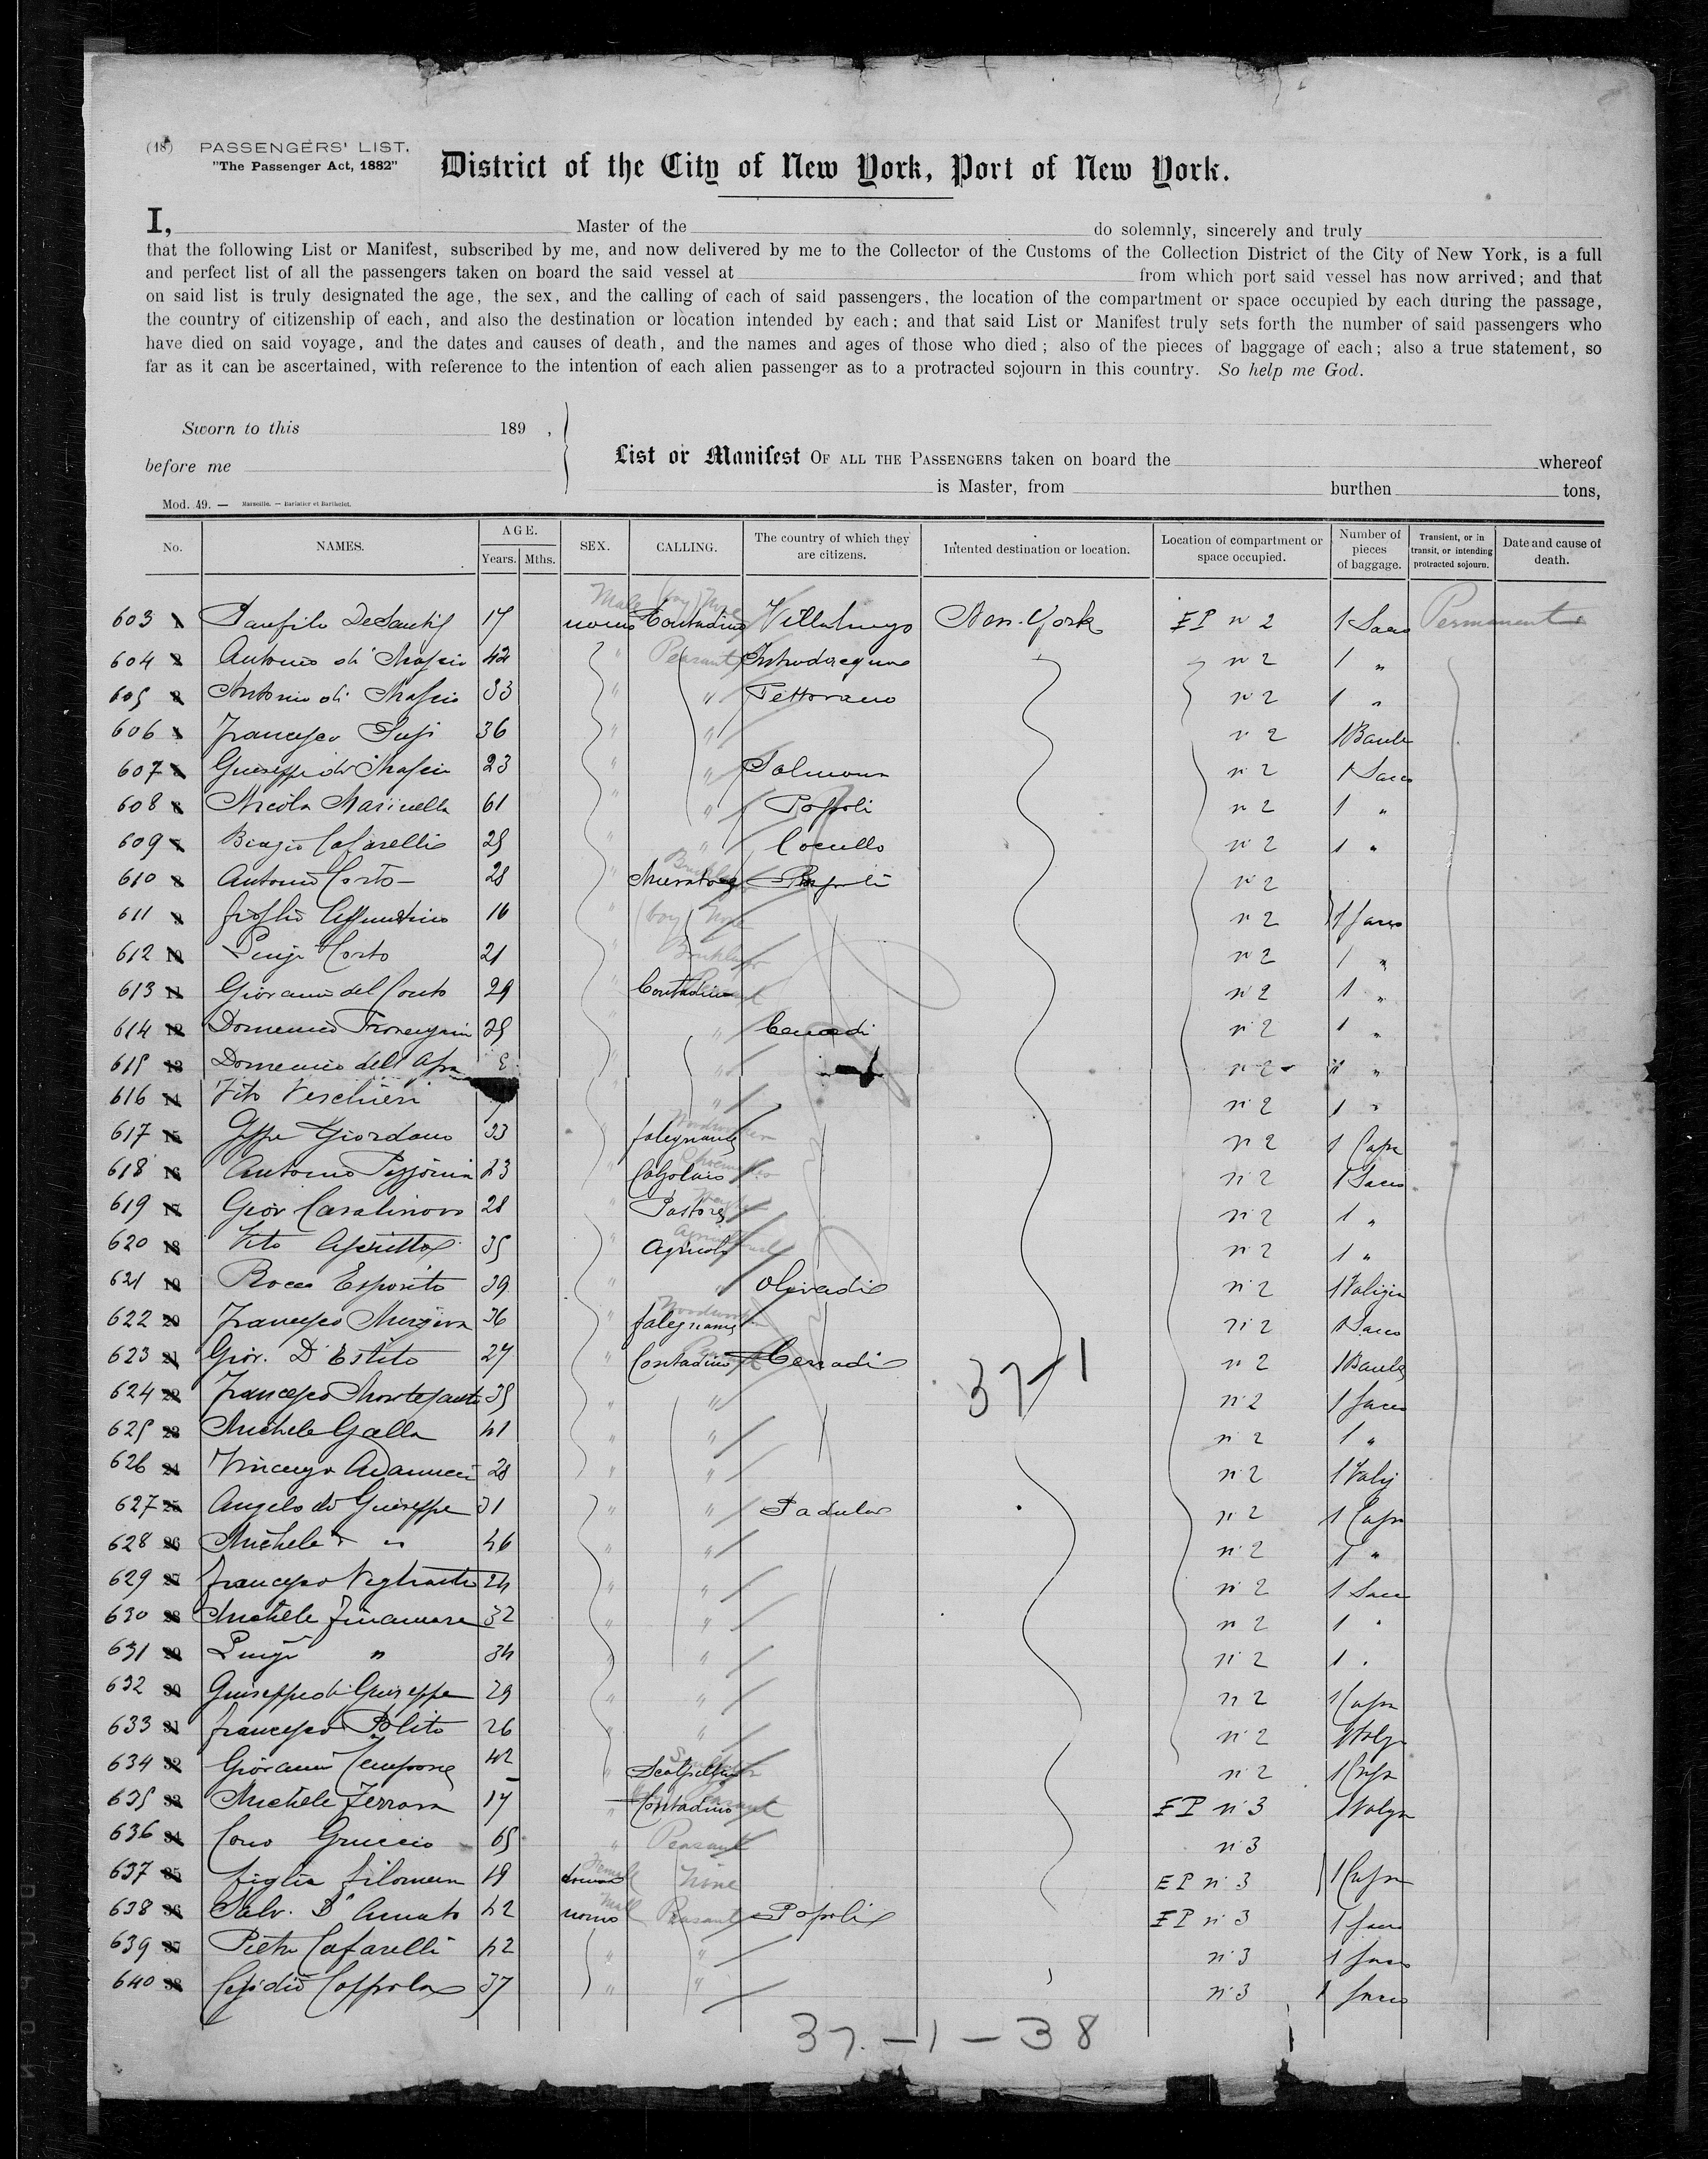 (18) PASSENGERS' LIST.
"The Passenger Act, 1882"
District of the City of New York, Port of New York.
I, Master of the do solemnly, sincerely and truly
that the following List or Manifest, subscribed by me, and now delivered by me to the Collector of the Customs of the Collection District of the City of New York, is a full
and perfect list of all the passengers taken on board the said vessel at from which port said vessel has now arrived; and that
on said list is truly designated the age, the sex, and the calling of each of said passengers, the location of the compartment or space occupied by each during the passage,
the country of citizenship of each, and also the destination or location intended by each; and that said List or Manifest truly sets forth the number of said passengers who
have died on said voyage, and the dates and causes of death, and the names and ages of those who died; also of the pieces of baggage of each; also a true statement, so
far as it can be ascertained, with reference to the intention of each alien passenger as to a protracted sojourn in this country. So help me God.
Sworn to this 189 ,
before me
List or Manifest OF ALL THE PASSENGERS taken on board the whereof
is Master, from burthen tons,
Mod. 49. — Marseille. — Barlatier et Barthelet.
No. NAMES. AGE. Years. Mths. SEX. CALLING. The country of which they are citizens. Intented destination or location. Location of compartment or space occupied. Number of pieces of baggage. Transient, or in transit, or intending protracted sojourn. Date and cause of death.
Male boy None
603 1 Panfilo DeSantis 17 uomo Contadino Villalago New-York EP n 2 1 Sacco Permanent
604 2 Antonio di Mascio 42 " Peasant Introdacqua n 2 1 "
605 3 Antonio di Mascio 33 " " Pettorano n 2 1 "
606 4 Francesco 36 " " n 2 1 Baule
607 5 Giuseppe di Mascio 23 " " Solmona n 2 1 Sacco
608 6 Nicola Marinella 61 " " Popoli n 2 1 "
609 7 Biagio Cafarelli 25 " " Cocullo n 2 1 "
610 8 Antonio Corto 28 " Muratore Popoli n 2
611 9 figlio Assuntino 16 " (boy) None n 2 1 Sacco
612 10 Luigi Corto 21 " n 2 1 "
613 11 Giovanni del Conto 29 " Contadino n 2 1 "
614 12 Domenico 25 " Cenadi n 2 1 "
615 13 Domenico dell " " n 2 " "
616 14 Vito " " n 2 1 "
617 15 Gppe Giordano 33 " falegname n 2 1 Cassa
618 16 Antonio 23 " Calzolaio n 2 1 Sacco
619 17 Giov Casalinovo 28 " Pastore n 2 1 "
620 18 Vito 35 " Agricola n 2 1 "
621 19 Rocco Esposito 39 " " Olivadi n 2 1 Valigia
622 20 Francesco 36 " falegname n 2 1 Sacco
623 21 Giov. D'Estito 27 " Contadino Cenadi n 2 1 Baule
37-1
624 22 Francesco Montesanto 35 " " n 2 1 Sacco
625 23 Michele Galla 41 " " n 2 1 "
626 24 Vincenzo 28 " " n 2 1 Valig
627 25 Angelo di Giuseppe 31 " " Padula n 2 1 Cassa
628 26 Michele " " 46 " " n 2 1 "
629 27 Francesco 24 " " n 2 1 Sacco
630 28 Michele Finamore 32 " " n 2 1 "
631 29 Luigi " 34 " " n 2 1 "
632 30 Giuseppe di Giuseppe 29 " " n 2 1 Cassa
633 31 Francesco Polito 26 " " n 2 1
634 32 Giovanni 42 " n 2 1 Cassa
635 33 Michele Ferrara 17 " Contadino EP n 3 1
636 34 Cono 65 " Peasant n 3
637 35 figlia Filomena 19 donna Female None EP n 3 1 Cassa
638 36 Salv. D'Amato 42 uomo Male Peasant Popoli EP n 3 1 Sacco
639 37 Pietro Cafarelli 42 " " n 3 1 Sacco
640 38 Cesidio Coppola 37 " " n 3 1 Sacco
37.-1-38